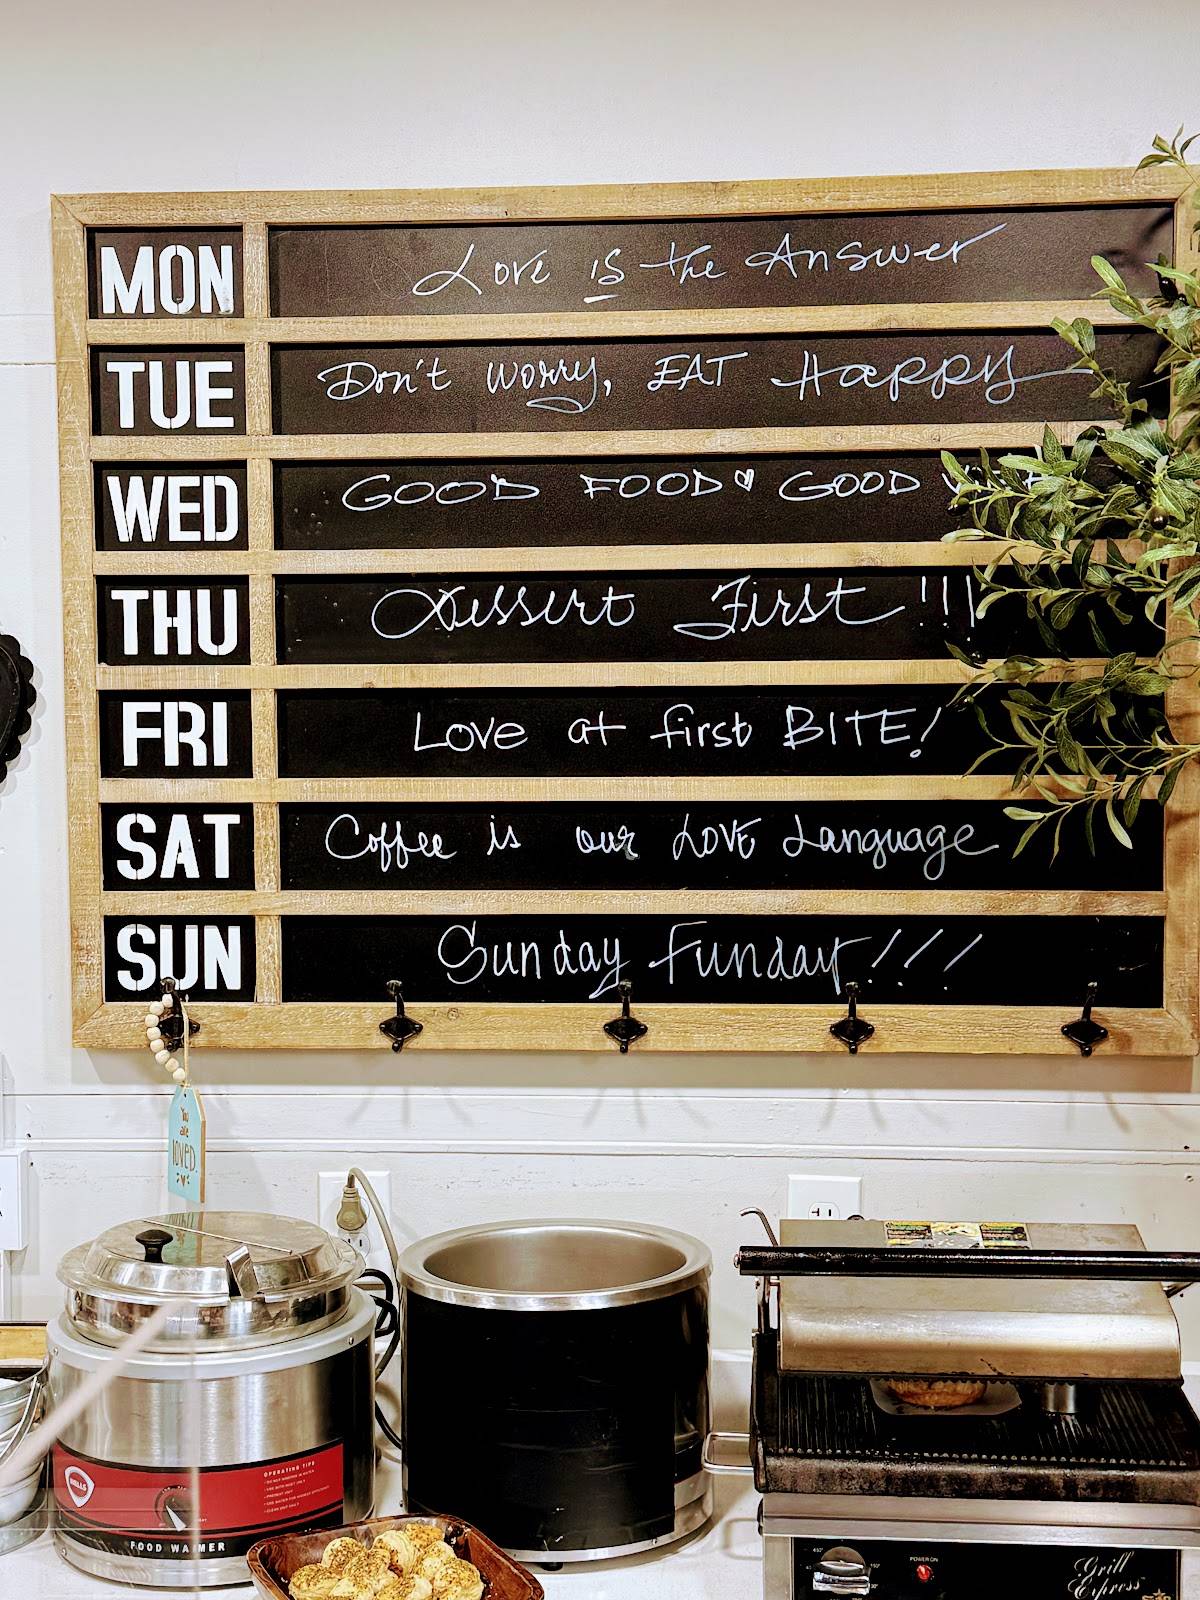 MON Love is the Answer
TUE Don't worry, EAT Happy
WED GOOD FOOD GOOD
THU Dessert First!!!
FRI Love at first BITE!
SAT Coffee is our LOVE Language
SUN Sunday Funday!!!
You
are
loved.
WELLS
OPERATING TIPS
FOOD WARMER
POWER ON
Grill
Express